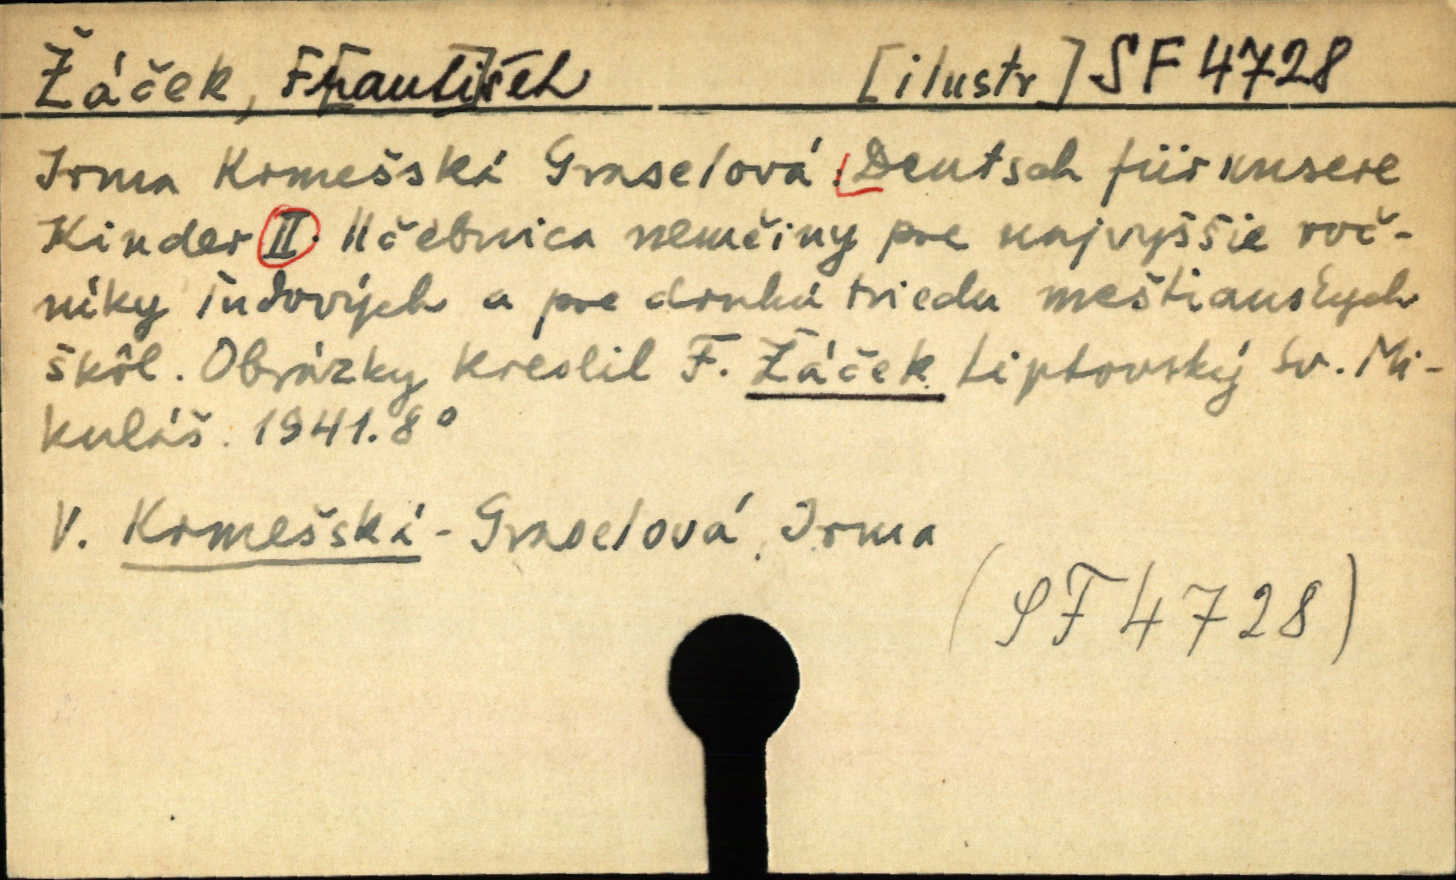 Žáček, František [ilustr] SF 4728
Irma Krmešská Graselová: Deutsch für unsere
Kinder II. Učebnica nemčiny pre najvyššie roč-
níky ľudových a pre druhú triedu meštianských
škôl. Obrázky kreslil F. Žáček Liptovský Sv. Mi-
kuláš. 1941. 8°
V. Krmešská-Graselová, Irma
(SF 4728)